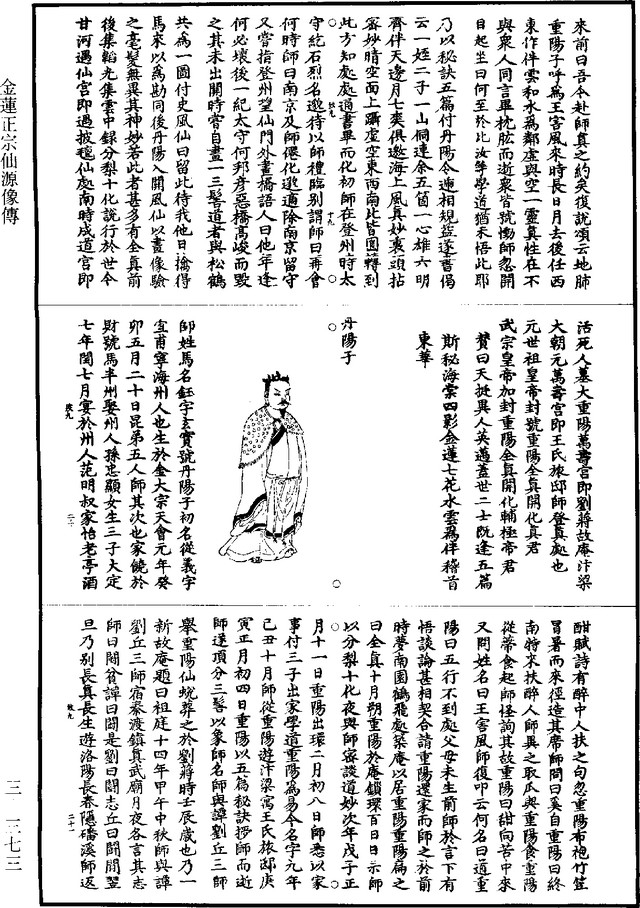 金蓮正宗仙源像傳
來前曰吾今赴師真之約矣復說頌云地肺
重陽子呼爲王害風來時長日月去後任西
東作伴雲和水爲鄰虛與空一靈真性在不
與衆人同言畢枕肱而逝衆皆號慟師忽開
目起坐曰何至於此汝等學道猶未悟此耶
乃以秘訣五篇付丹陽令遞相規益遂書偈
云一姪二子一山侗連余五箇一心雄六明
齊伴天邊月七爽俱邀海上風真妙裏頭拈
密妙晴空面上躡虛空東西南北皆圓轉到
此方知處處通書畢而化初師在登州時太
守紇石烈名邈待以師禮臨別謂師曰再會
何時師曰南京及師僊化邈適除南京留守
又嘗指登州望仙門外畫橋語人曰他年逢
何必壞後一紀太守何邦彥惡橋高峻而毀
之其未出關時嘗自畫一三髻道者與松鶴
共爲一圖付史風仙曰留此待我他日擒得
馬來以爲勘同後丹陽入關風仙以畫像驗
之毫髮無異其神妙若此者甚多有全真前
後集韜光集雲中錄分梨十化說行於世今
甘河遇仙宫即遇披氊仙處南時成道宫即
活死人墓大重陽萬壽宫即劉蔣故庵汴梁
大朝元萬壽宫即王氏旅邸師登真處也
元世祖皇帝封號重陽全真開化真君
武宗皇帝加封重陽全真開化輔極帝君
贊曰天挺異人英邁蓋世二士既逢五篇
斯秘海棠四影金蓮七花水雲爲伴稽首
東華
丹陽子
師姓馬名鈺字玄寶號丹陽子初名從義字
宜甫寧海州人也生於金太宗天會元年癸
卯五月二十日昆弟五人師其次也家饒於
財號馬半州娶州人孫忠顯女生三子大定
七年閏七月宴於州人范明叔家怡老亭酒
酣賦詩有醉中人扶之句忽重陽布袍竹笠
冒暑而來徑造其席師問曰奚自重陽曰終
南特來扶醉人師異之取瓜與重陽食重陽
從蒂食起師怪詢其故重陽曰甜向苦中來
又問姓名曰王害風師復叩云何名曰道重
陽曰五行不到處父母未生前師於言下有
悟談論甚相契合請重陽還家而師之於前
時夢南園鶴飛處築庵以居重陽重陽扁之
曰全真十月朔重陽於庵鎖環百日日示師
以分梨十化夜與師密談道妙次年戊子正
月十一日重陽出環二月初八日師悉以家
事付三子出家學道重陽爲易今名字元年
己丑十月師從重陽遊汴梁寓王氏旅邸庚
寅正月初四日重陽以五篇秘訣授師而逝
師遂頂分三髻以象師名師與譚劉丘三師
舉重陽仙蛻葬之於劉蔣時壬辰歲也乃一
新故庵題曰祖庭十四年甲午中秋師與譚
劉丘三師宿秦渡鎮真武廟月夜各言其志
師曰鬪貧譚曰鬪是劉曰鬪志丘曰鬪閒翌
旦乃別長真長生遊洛陽長春隱磻溪師返
三一三七三